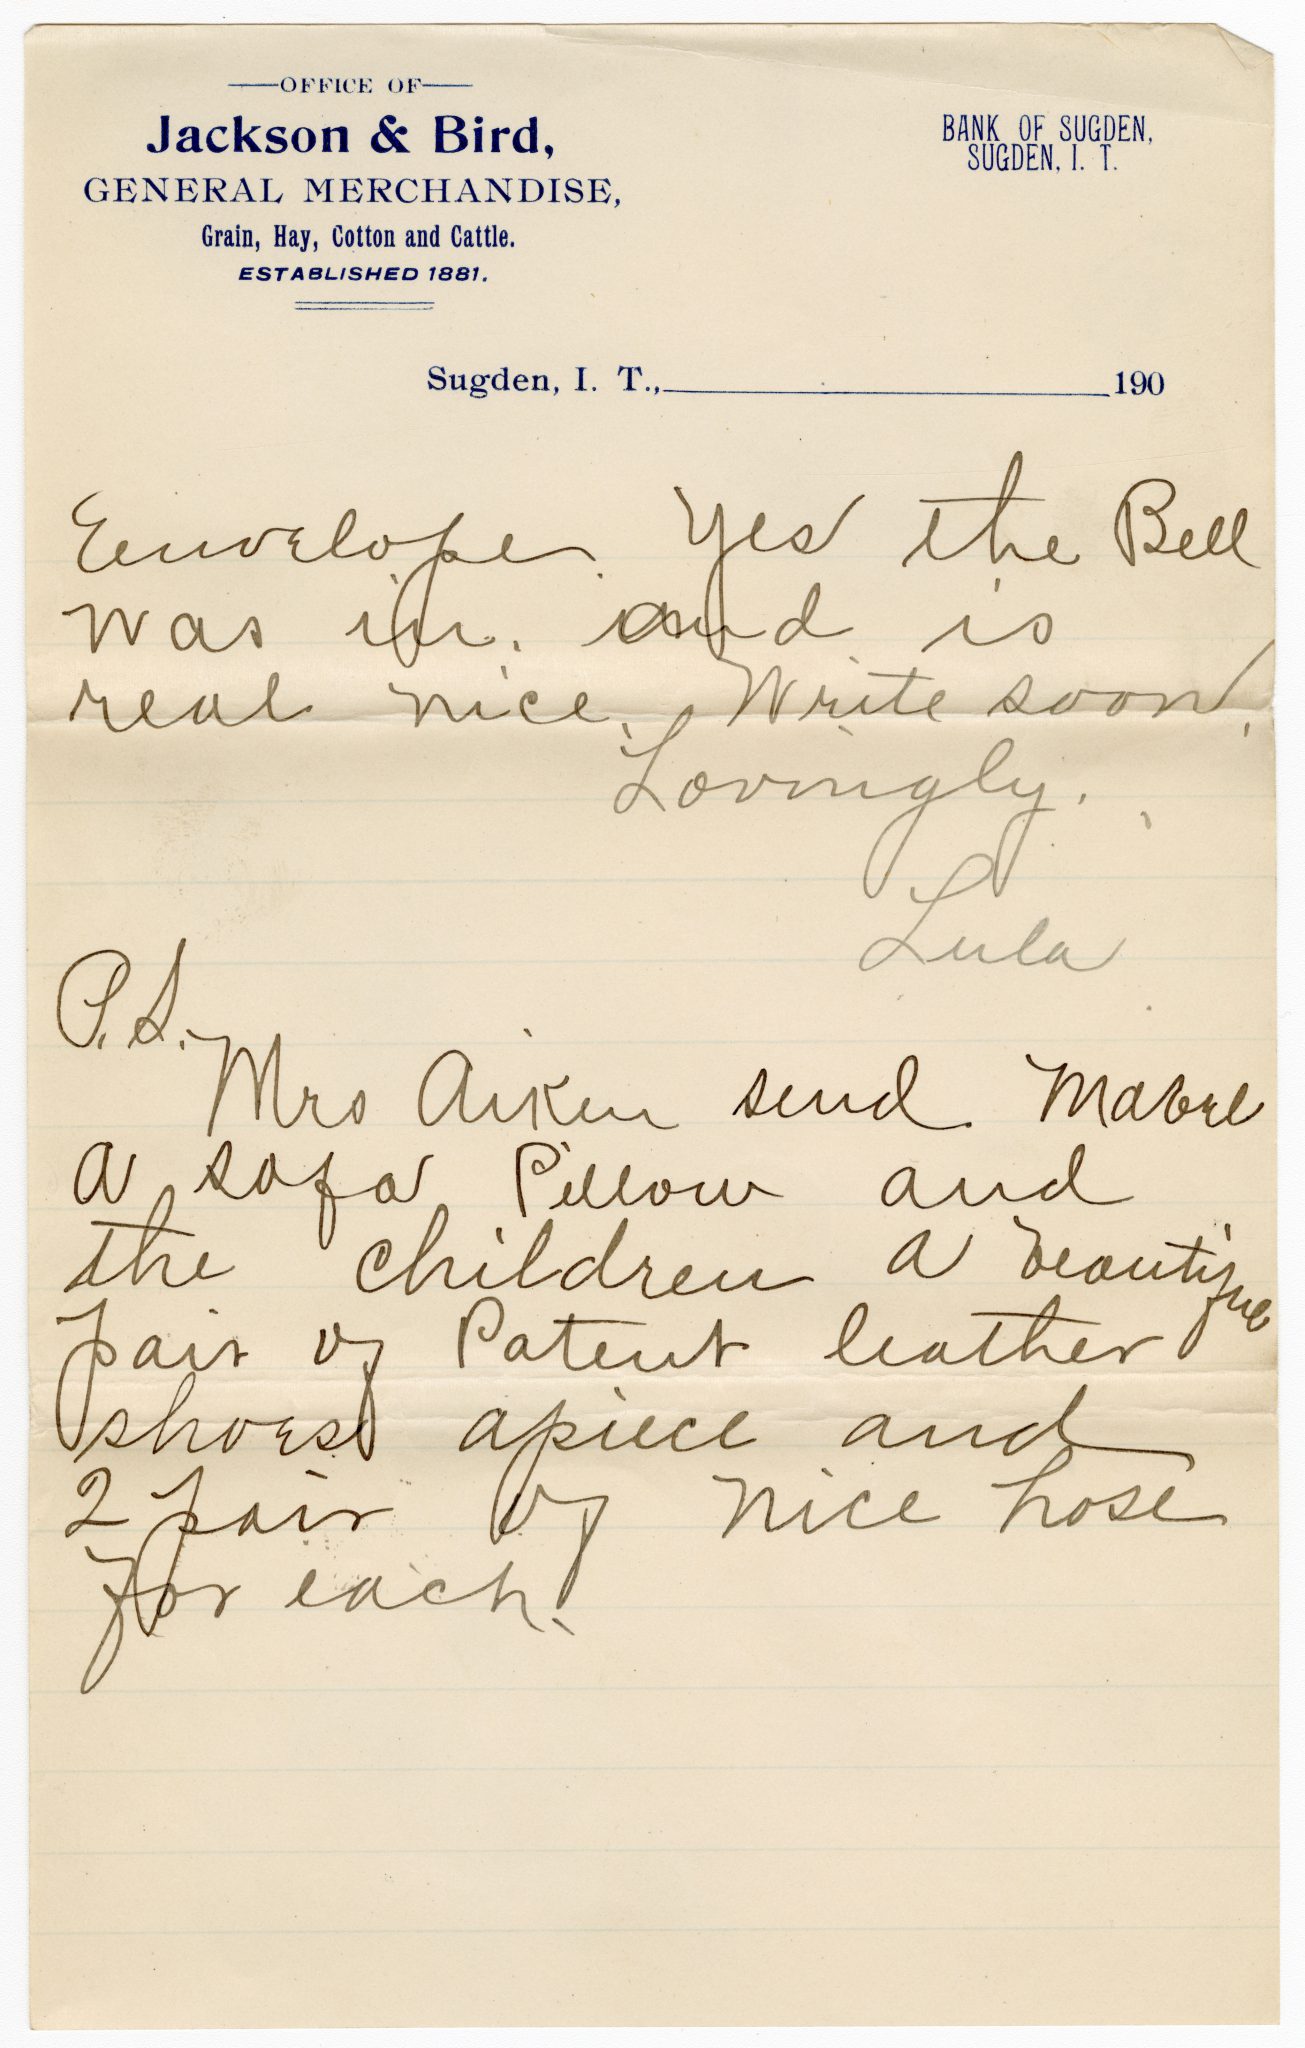 OFFICE OF
Jackson & Bird,
GENERAL MERCHANDISE,
Grain, Hay, Cotton and Cattle.
ESTABLISHED 1881.
BANK OF SUGDEN,
SUGDEN, I. T.
Sugden, I. T., 190
Envelope. Yes the Bell
was in. and is
real nice. Write soon.
Lovingly.
Lula
P.S.
Mrs Aiken send Mabel
a sofa Pillow and
the children a Beautiful
pair of Patent leather
shoes apiece and
2 pair of nice hose
for each.